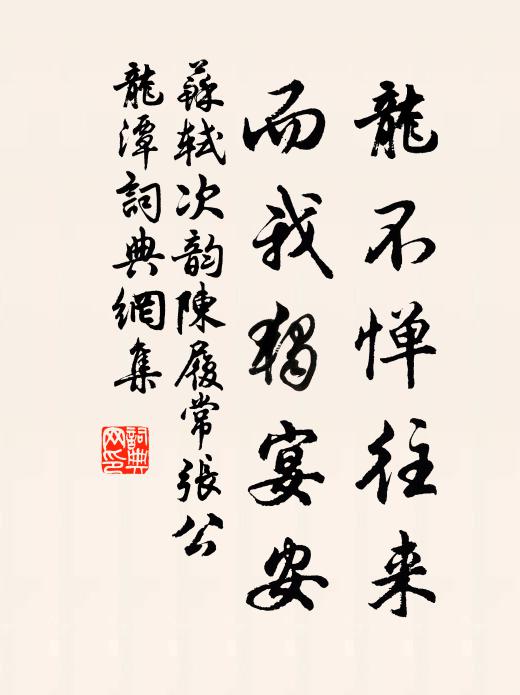 龍不惮往来
而我独宴安
蘇軾次韵陳履常張公
龍潭詞典網集
詞典网印